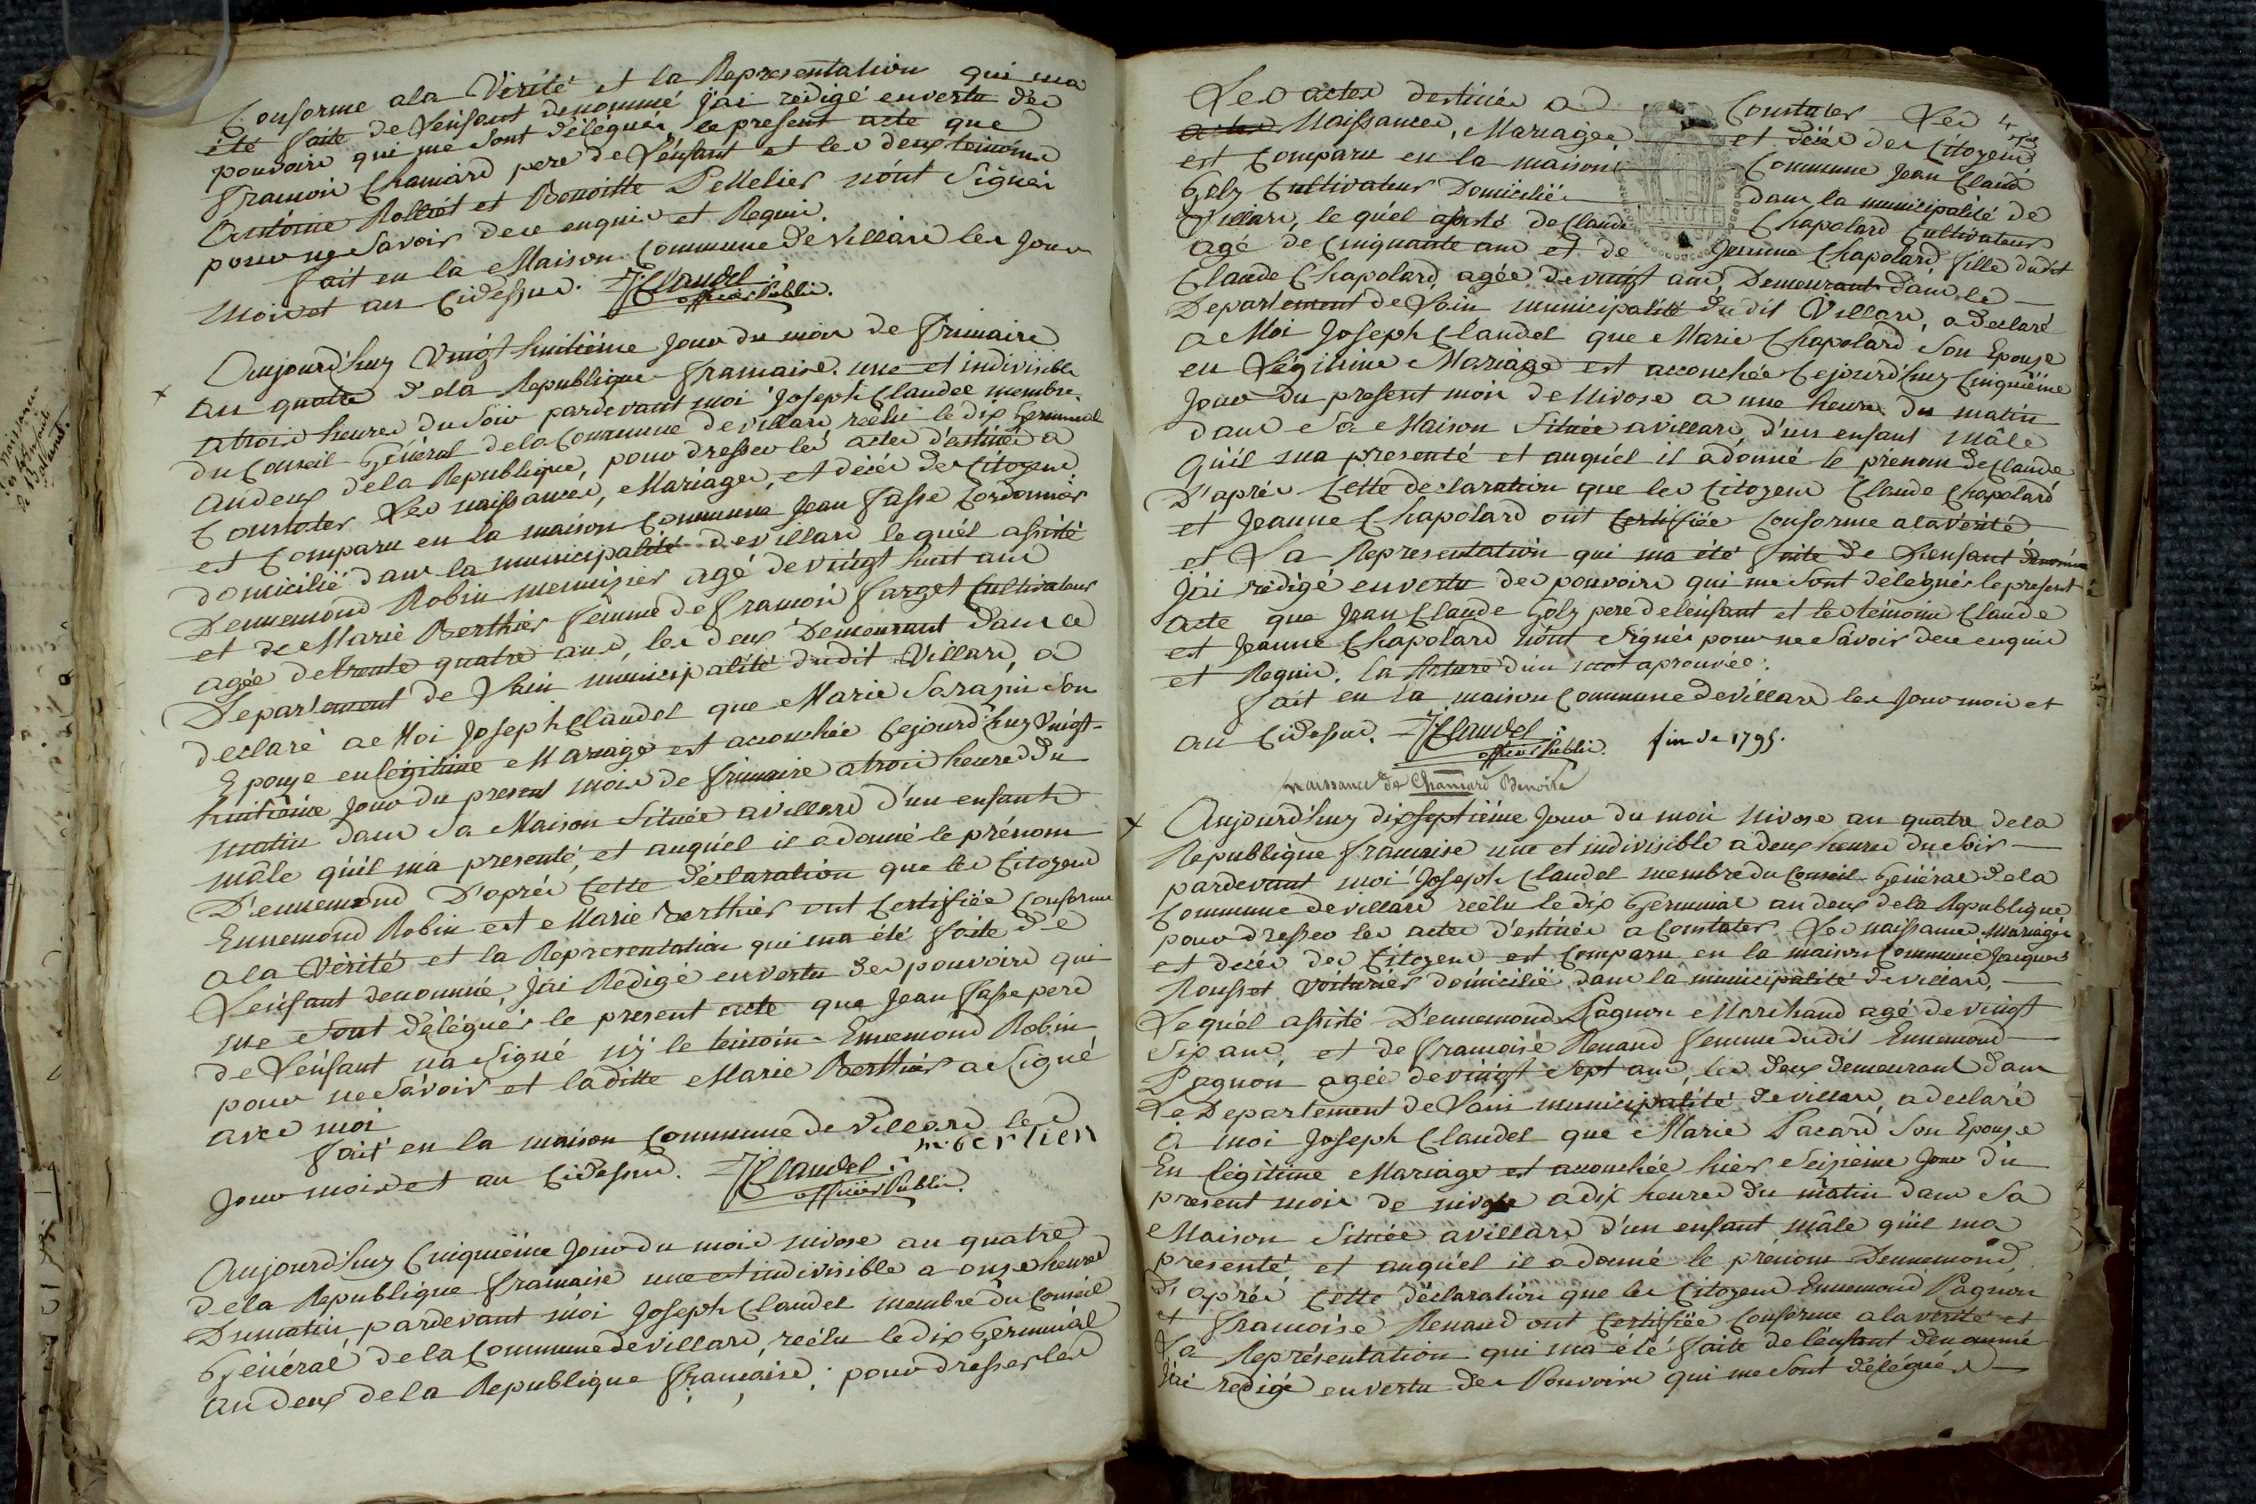 Conforme ala Vérité et la Representation qui ma
été faite de L'enfant denommé j'ai redigé envertu des
pouvoirs qui me sont délégués, le present acte que
François Chamard pere de L'énfant et les deux témoins
Antoine Rolliet et Benoitte Pelletier n'ont Signés
pour ne Savoir dece enquis et Requis.
fait en la Maison Commune de Villars les Jour
Mois et an Cidessus. JClaudel
officier Public.
Aujourd'huy Vingt huitième jour du mois de frimaire
an quatre dela Republique francaise. une et indivisible
atrois heures du Soir pardevant moi Joseph Claudel membre
du Conseil Général dela Commune devillars réélu le dix Germinal
andeux dela Republique, pour dresser les actes déstinés a
Constater Les naissances, Mariages, et décés des Citoyens
est Comparu en la maison Commune Jean fasse Cordonnier
domicilié dans la municipalité devillars lequél assisté
Dennemond Robin menuizier agé devingt huit ans
et de Marie Berthier femme de francois farget Cultivateur
agée detrente quatre ans, les deux Demeurant dans ce
Departement de L'ain municipalité dudit Villars, a
declaré a Moi Joseph Claudel que Marie Sarazin Son
Epouse enlégitime Mariage est accouchée Cejourd'huy Vingt-
huitième jour du present mois de frimaire atrois heures du
matin dans Sa Maison Située avillars d'un enfant
mâle qu'il ma presenté, et auquél il adonné le prénom
D'ennemond D'aprés Cette déclaration que les Citoyens
Ennemond Robin et Marie Berthier ont Certifiée Conforme
ala Vérité et la Representation qui ma été faite de
L'enfant denommé, j'ai Redigé envertu des pouvoirs qui
me sont délégués le present acte que Jean fasse pere
de L'énfant na Signé n'y le témoin Ennemond Robin
pour ne Savoir et laditte Marie Berthier a Signé
avec moi
fait en la maison Commune de Villars les
Jour mois et an Cidessus. JClaudel
officier Public.
Aujourd'huy Cinquième jour du mois nivose an quatre
dela Republique francaise une et indivisible a onze heures
Dumatin pardevant moi Joseph Claudel membre du Conseil
Général dela Commune devillars, réélu le dix Germinal
an deux dela Republique francaise, pour dresser les
Les actes destinés a Constater Les
Naissances, Mariages et décés des Citoyens
est Comparu en la maison Commune Jean Claude
Goly Cultivateur Domicilié dans la municipalité de
Villars, le quél assisté de Claude Chapolard Cultivateur
agé de Cinquante ans et de Jeanne Chapolard fille dudit
Claude Chapolard, agée devingt ans, Demeurant dans le
Departement de L'ain municipalité dudit Villars, a declaré
a Moi Joseph Claudel que Marie Chapolard Son Epouse
en Légitime Mariage est accouchée Cejourd'huy Cinquième
Jour Du present mois de Nivose a une heure du matin
dans Sa Maison Située avillars, d'un enfant mâle
Qu'il ma presenté et auquél il adonné le prénom de Claude
D'aprés Cette declaration que les Citoyens Claude Chapolard
et Jeanne Chapolard ont Certifiée Conforme ala Vérité
et La Representation qui ma été faite de L'enfant dénommé
j'ai redigé envertu des pouvoirs qui me Sont délégués le present
acte que Jean Claude Goly pere del'énfant et les témoins Claude
et Jeanne Chapolard n'ont Signés pour ne Savoir dece enquis
et Requis. la Rature d'un mot aprouvée.
fait en la maison Commune devillars les Jour mois et
an Cidessus. JClaudel
officier Public. fin de 1795.
naissance de Chamard Benoite
Aujourd'huy dixseptième Jour du mois nivose an quatre dela
Republique francaise une et indivisible adeux heures du Soir
pardevant moi Joseph Claudel membre du Conseil Général dela
Commune devillars réélu le dix Germinal an deux dela Republique
pour dresser les actes déstinés a Constater Les naissances Mariages
et decés des Citoyens est Comparu en la maison Commune Jacques
Rousset Voiturier domicilié dans la municipalité devillars,
Le quél assisté D'ennemond Pagnon Marchand agé de vingt
Six ans, et de francoise Renaud femme dudit Ennemond
Pagnon agée devingt Sept ans, les deux demeurant dans
Le Departement de L'ain municipalité devillars, a declaré
a moi Joseph Claudel que Marie Pacard Son Epouse
En légitime Mariage est accouchée hier Seizieme jour du
present mois de nivose a dix heures du matin dans Sa
Maison Située avillars d'un enfant mâle qu'il ma
presenté et auquél il adonné le prénom Dennemond
D'aprés Cette déclaration que les Citoyens Ennemond Pagnon
et francoise Renaud ont Certifiée Conforme alaverité et
La Représentation qui ma été faite de l'énfant dénommé
j'ai redigé envertu des Pouvoirs qui me Sont délégués